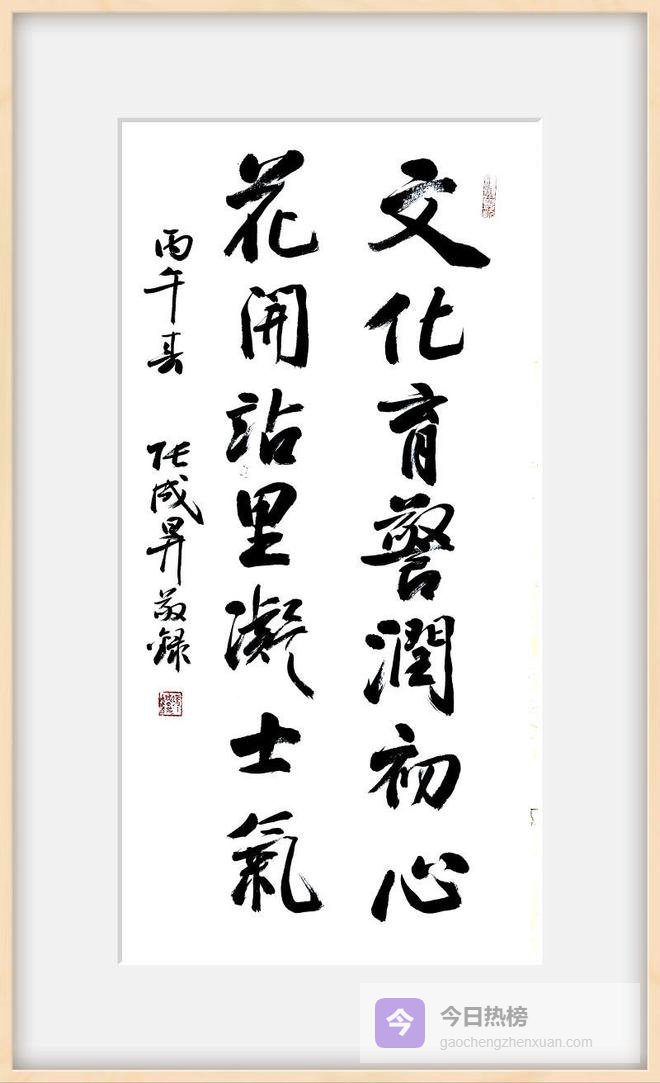 文化育警潤初心
花開站里凝士氣
丙午春 張成昇敬録
今
今日热榜
gaochengzhenxuan.com